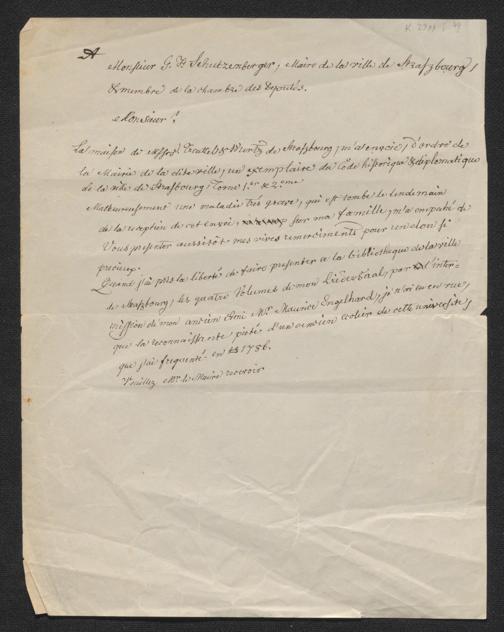 A
Monsieur G. F. Schutzenberger, Maire de la ville de Strasbourg,
& membre de la chambre des Deputés.
Monsieur!
La maison de Messrs Treuttel & Würtz de Strasbourg, m'a envoié, d'ordre de
la Mairie de la dite ville, un exemplaire du Code historique & diplomatique
de la ville de Strasbourg Tome 1er & 2eme
Malheureusement une maladie très grave, qui est tombé le lendemain
de la reception de cet envoi, sur ma famille, m'a empêché de
Vous presenter aussitôt mes vives remerciments pour un don si
precieux.
Quand j'ai pris la liberté de faire presenter à la bibliotheque de la ville
de Strasbourg, les quatre Volumes de mon Liedersaal, par l'inter-
mission de mon ancien Ami Mr. Maurice Engelhard, je n'ai eu en vue,
que la reconnaissante pieté d'un ancien ecolier de cette université,
que j'ai frequenté en 1786.
Veuillez Mr. le Maire recevoir